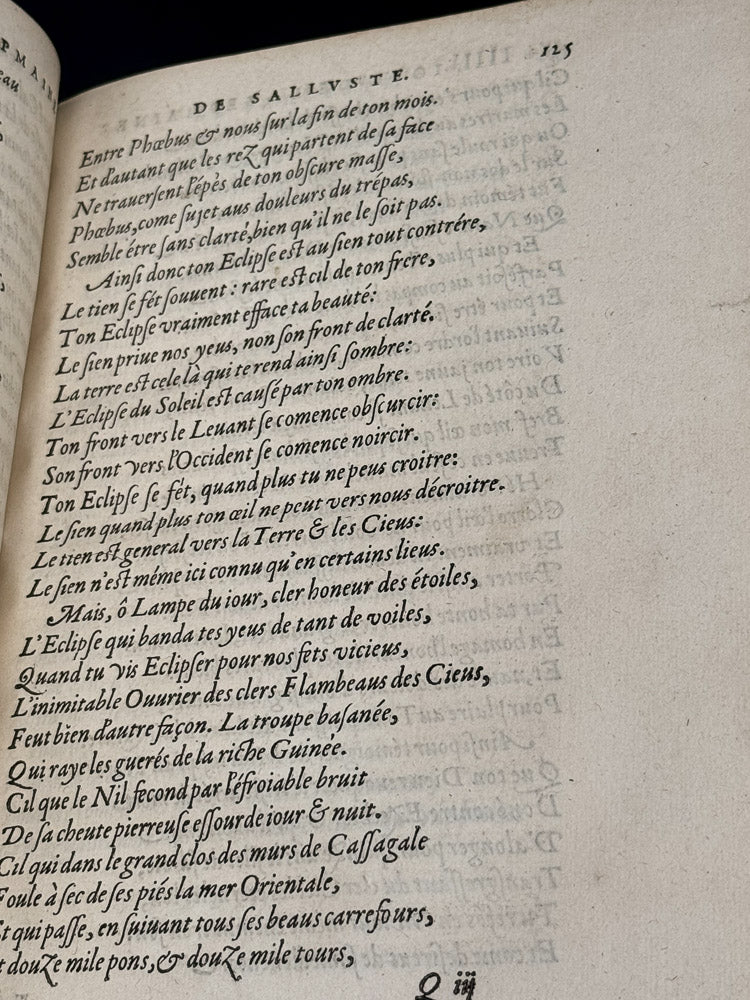 DE SALLVSTE. 125
Entre Phœbus & nous ſur la fin de ton mois.
Et d'autant que les reZ qui partent de ſa face
Ne trauerſent l'épès de ton obſcure maſſe,
Phœbus, come ſujet aus douleurs du trépas,
Semble étre ſans clarté, bien qu'il ne le ſoit pas.
Ainſi donc ton Eclipſe eſt au ſien tout contrére,
Le tien ſe fét ſouuent : rare eſt cil de ton frere,
Ton Eclipſe vraiment efface ta beauté:
Le ſien priue nos yeus, non ſon front de clarté.
La terre eſt cele là qui te rend ainſi ſombre:
L'Eclipſe du Soleil eſt cauſé par ton ombre.
Ton front vers le Leuant ſe comence obſcurcir:
Son front vers l'Occident ſe comence noircir.
Ton Eclipſe ſe fét, quand plus tu ne peus croitre:
Le ſien quand plus ton œil ne peut vers nous décroitre.
Le tien eſt general vers la Terre & les Cieus:
Le ſien n'eſt méme ici connu qu'en certains lieus.
Mais, ô Lampe du iour, cler honeur des étoiles,
L'Eclipſe qui banda tes yeus de tant de voiles,
Quand tu vis Eclipſer pour nos fets vicieus,
L'inimitable Ouurier des clers Flambeaus des Cieus,
Feut bien d'autre façon. La troupe baſanée,
Qui raye les guerés de la riche Guinée.
Cil que le Nil fecond par l'éfroiable bruit
De ſa cheute pierreuſe eſſourde iour & nuit.
Cil qui dans le grand clos des murs de Caſſagale
Foule à ſec de ſes piés la mer Orientale,
Et qui paſſe, en ſuiuant tous ſes beaus carrefours,
douZe mile pons, & douZe mile tours,
Q iij